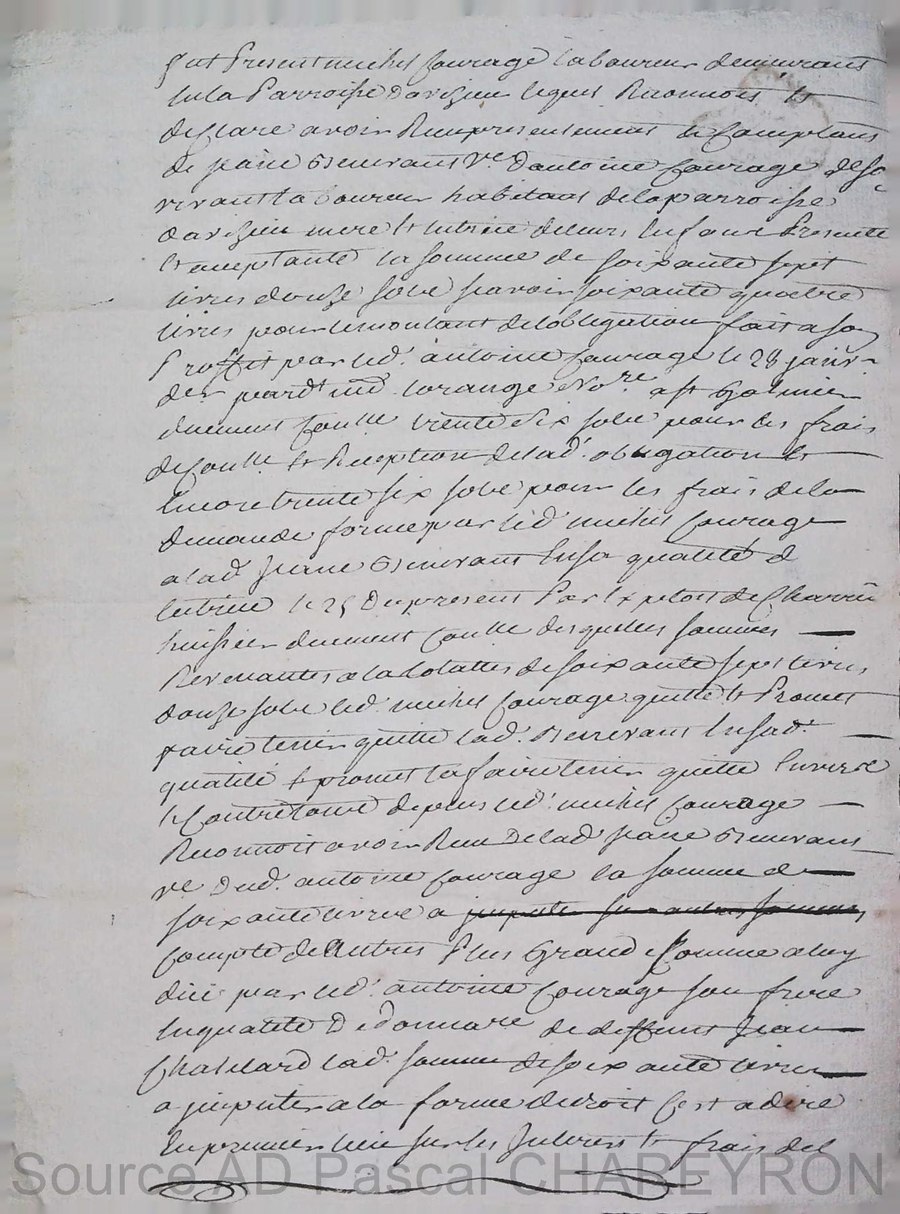 fut Present michel Courage laboureur demeurant
en la Parroisse Davizieu lequel Reconnoit et
declare avoir Reçu presentement de Comptant
de jeane Grenerant Ve D'antoine Courage de so
vivant laboureur habitant de la parroisse
davizieu mere et tutrice de leurs Enfans Presente
et acceptante la somme de soixante sept
livres douze sols scavoir soixante quatre
livres pour le montant de l'obligation fait a son
Proffit par led. antoine Courage le 28 janv.
der pardt me. lorange Nore. a st Galmier
duement Conlle trente six sols pour les frais
de Conlle et Reception de lad. obligation et
Encore trente six sols pour les frais de la
demande formé par led. michel Courage
a lad. jeane Grenerant En sa qualité de
tutrice le 25 Du present Par Exploit de Charrin
huissier duement Conlle desquelles sommes
Revenantes a la totallité de soixante sept livres
douze sols led. michel Courage quitte et Promet
faire tenir quitte lad. Grenerant En sad.
qualité et promet la faire tenir quitte Envers
et Contre tous de plus led. michel Courage
Reconnoit avoir Reçu De lad. jeane Grenerant
ve Dud. antoine Courage la somme de
soixante livres a imputer sur autres sommes
Compte de autres Plus Grande Somme a luy
düe par led. antoine Courage son frere
En qualité De donnaire de deffunt jean
Chatelard lad. somme de soixante livres
a imputer a la forme du droit C'est a dire
En premier lieu sur les Interest et frais del
Source AD Pascal CHABEYRON